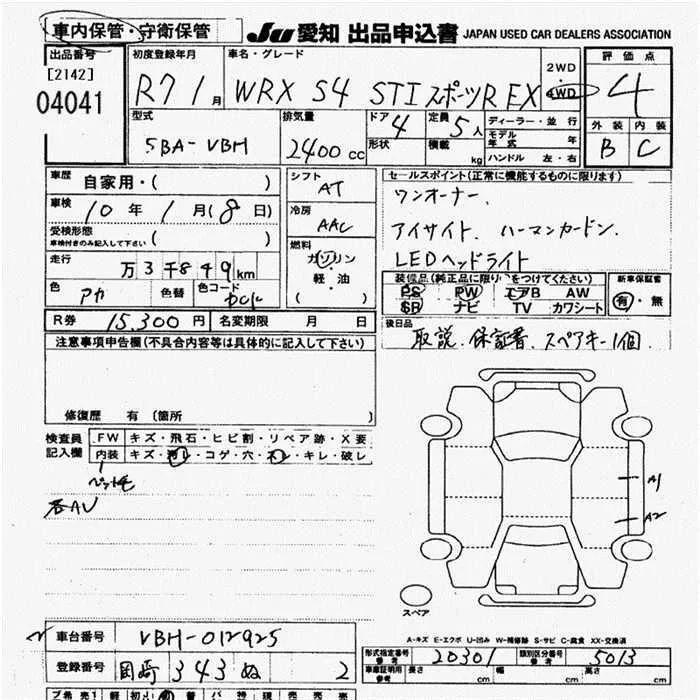 車内保管・守衛保管 JU 愛知 出品申込書 JAPAN USED CAR DEALERS ASSOCIATION
出品番号 初度登録年月 車名・グレード 2WD 評価点
[2142] ・
04041 R7 1月 WRX S4 STI スポーツR EX 4WD 4
型式 排気量 ドア 4 定員 5人 ディーラー・並行 外装 内装
5BA-VBH 2400cc 形状 積載 kg モデル年式 年 B C
ハンドル 左・右
車歴 自家用・( ) シフト AT セールスポイント(正常に機能するものに限ります)
車検 10年 1月(8日) 冷房 AAC ワンオーナー.
受検形態 アイサイト. ハーマンカードン.
車検付きのみ記入して下さい ( ) 燃料 LEDヘッドライト
走行 万3千849km ガソリン 装備品(純正品に限り をつけてください) 新車保証書
色 アカ 色替 色コード 軽・油 PS PW エアB AW 有・無
( ) SB ナビ TV カワシート
R券 15,300円 名変期限 月 日 後日品
注意事項申告欄(不具合内容等は具体的に記入して下さい) 取説. 保証書. スペアキー1個.
修復歴 有 (箇所 )
検査員 FW キズ・飛石・ヒビ割・リペア跡・X要
記入欄 内装 キズ・汚レ・コゲ・穴・スレ・キレ・破レ
ペット毛
A1
A2
スペア
A-キズ E-エクボ U-凹み W-補修跡 S-サビ C-腐食 XX-交換済
車台番号 VBH-012925
型式指定番号 参考 20301 類別区分番号 参考 5013
登録番号 岡崎 343 ぬ 2
車庫証明用 参考 長さ cm 幅 cm 高さ cm